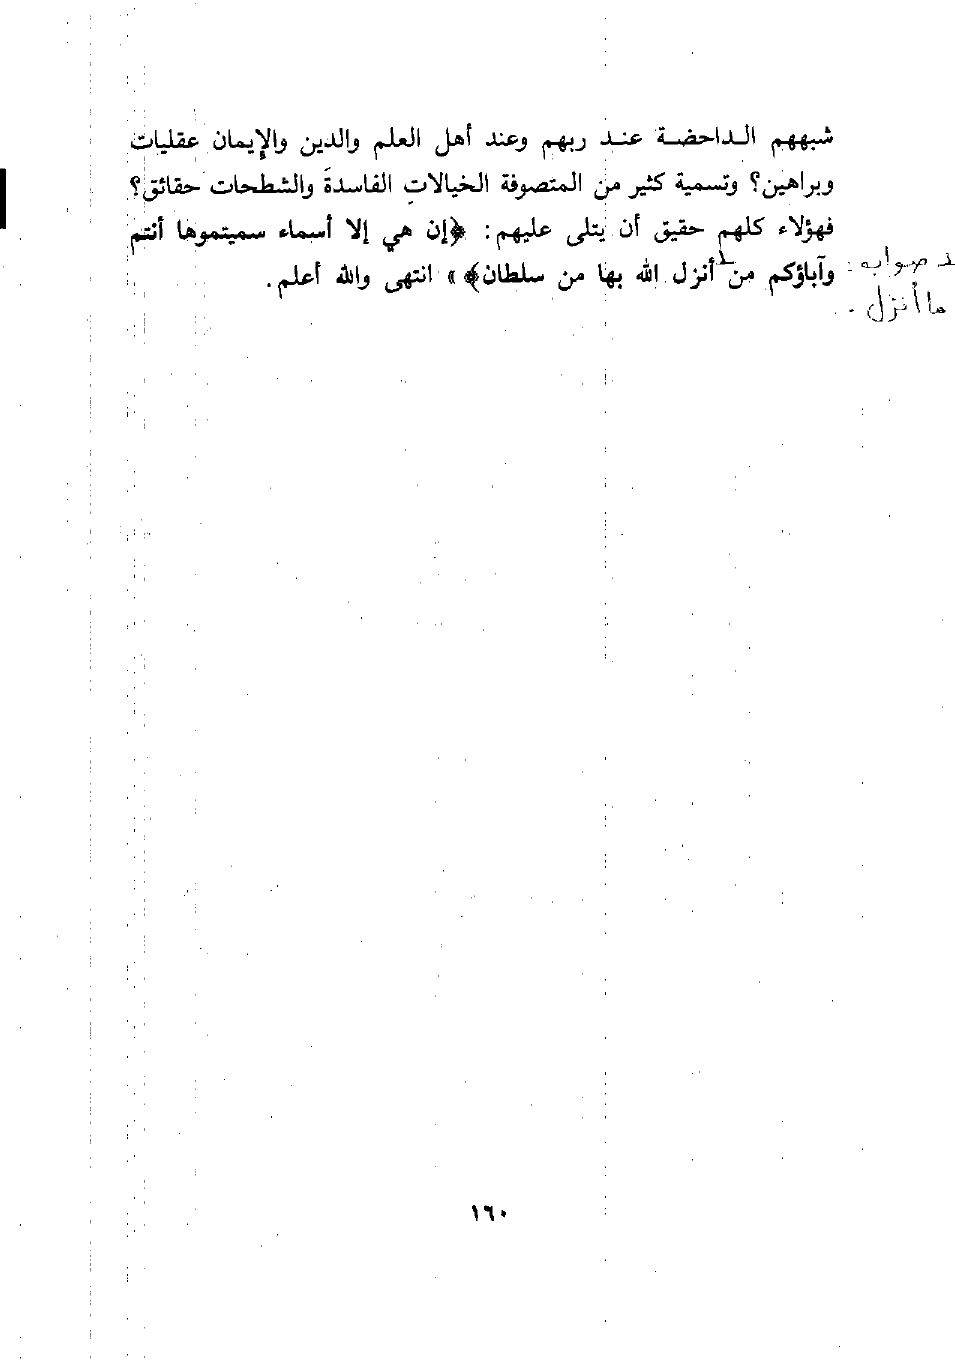 شبههم الـداحضـة عنـد ربهم وعند أهل العلم والدين والإيمان عقليات
وبراهين؟ وتسمية كثير من المتصوفة الخيالات الفاسدة والشطحات حقائق؟
فهؤلاء كلهم حقيق أن يتلى عليهم: ﴿إن هي إلا أسماء سميتموها أنتم
وآباؤكم من أنزل الله بها من سلطان﴾» انتهى والله أعلم.
صوابه:
ما أنزل.
١٦٠